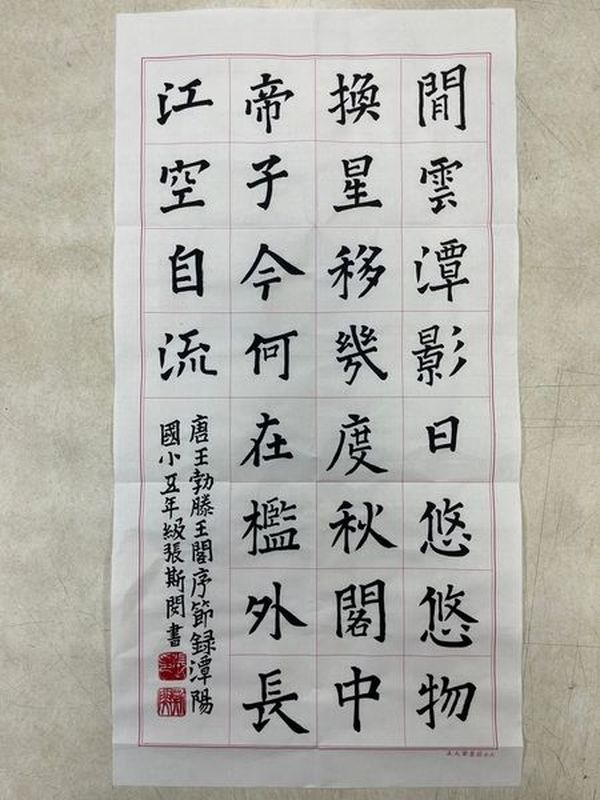 閒雲潭影日悠悠物
換星移幾度秋閣中
帝子今何在檻外長
江空自流
唐王勃滕王閣序節録潭陽
國小五年級張斯閔書